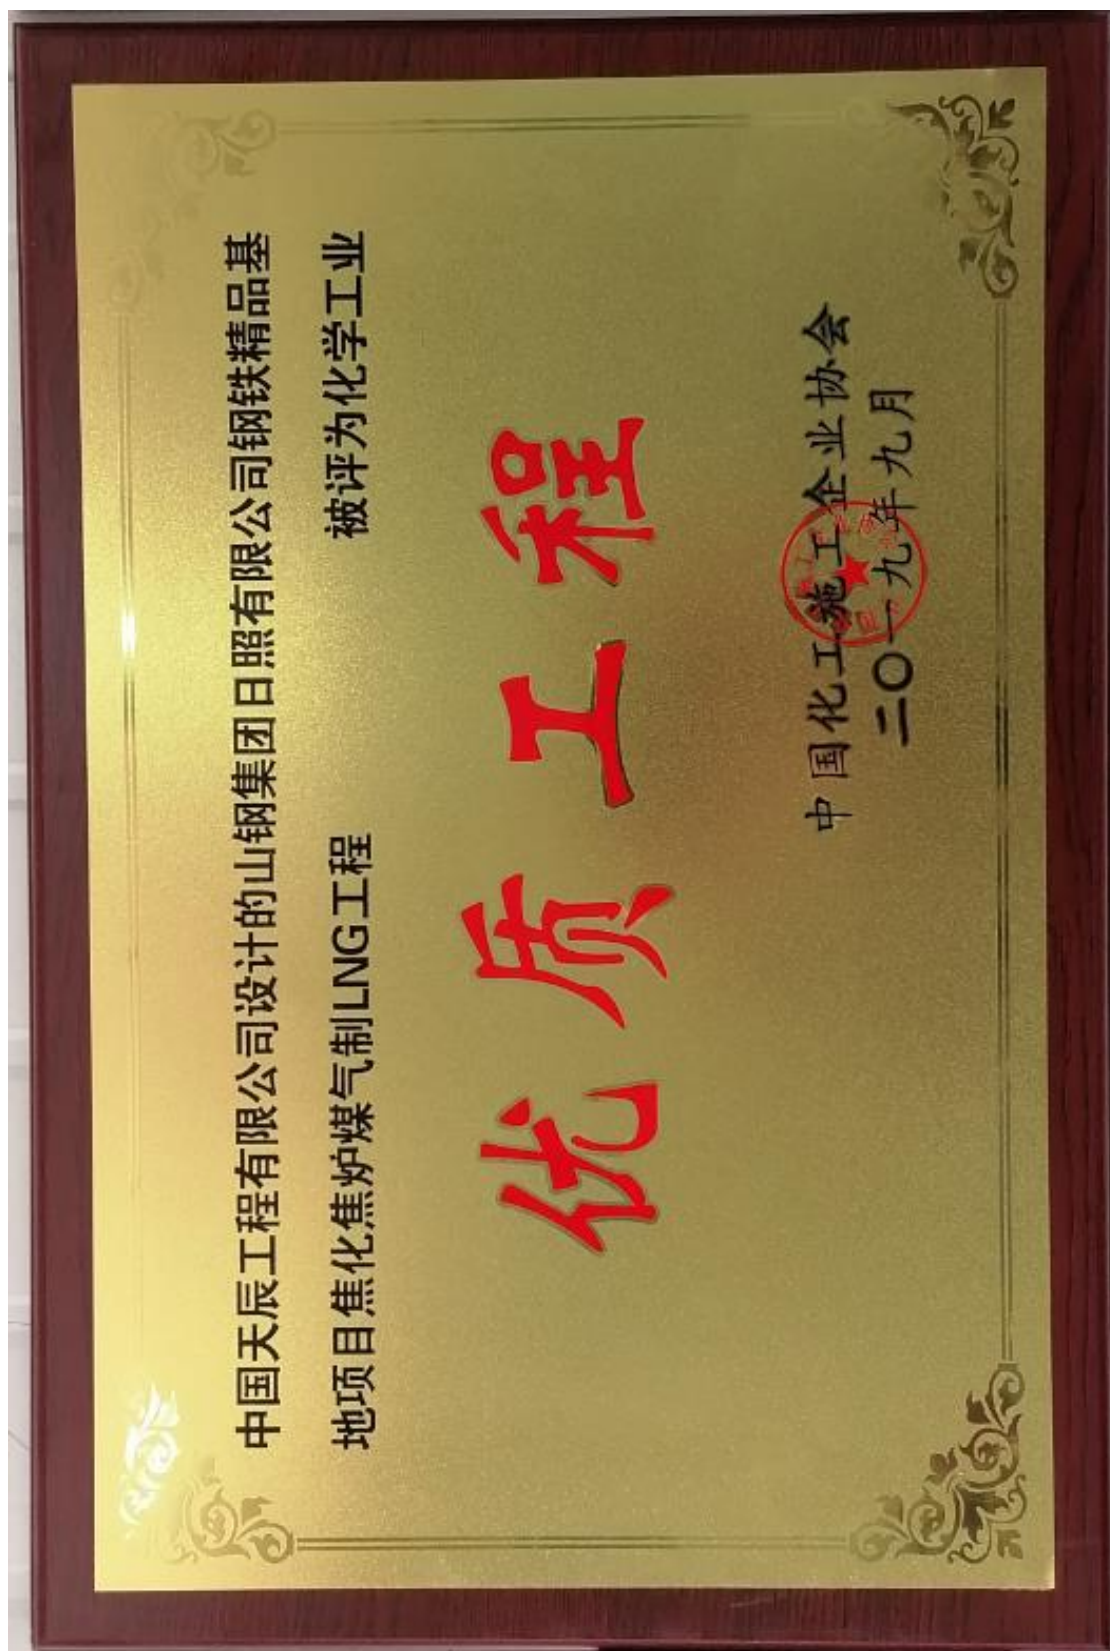 中国天辰工程有限公司设计的山钢集团日照有限公司钢铁精品基
地项目焦化焦炉煤气制LNG工程 被评为化学工业
优质工程
中国化工施工企业协会
二〇一九年九月